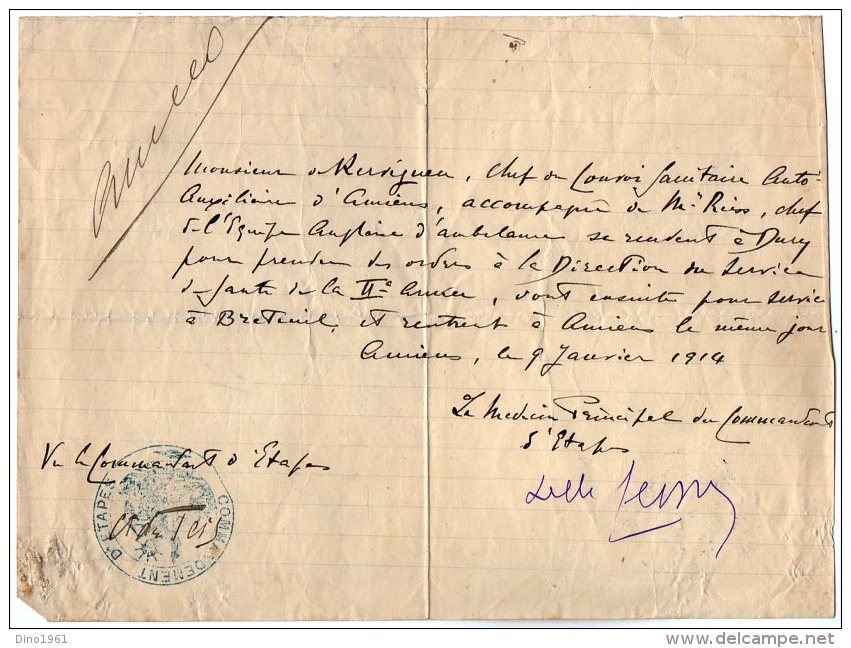 Monsieur de Kerviguen, chef du Convoi Sanitaire Auto-
Auxiliaire d'Amiens, accompagné de Mr Riess, chef
de l'Equipe Anglaise d'ambulances se rendent à Dury
pour prendre des ordres à la Direction du Service
de Santé de la IIe Armée, vont ensuite pour service
à Breteuil, et rentrent à Amiens le même jour
Amiens, le 9 Janvier 1914
Le Medecin Principal du Commandant
d'Etapes
Vu le Commandant d'Etapes
COMMANDEMENT D'ETAPES
Dino1961
delcampe.net